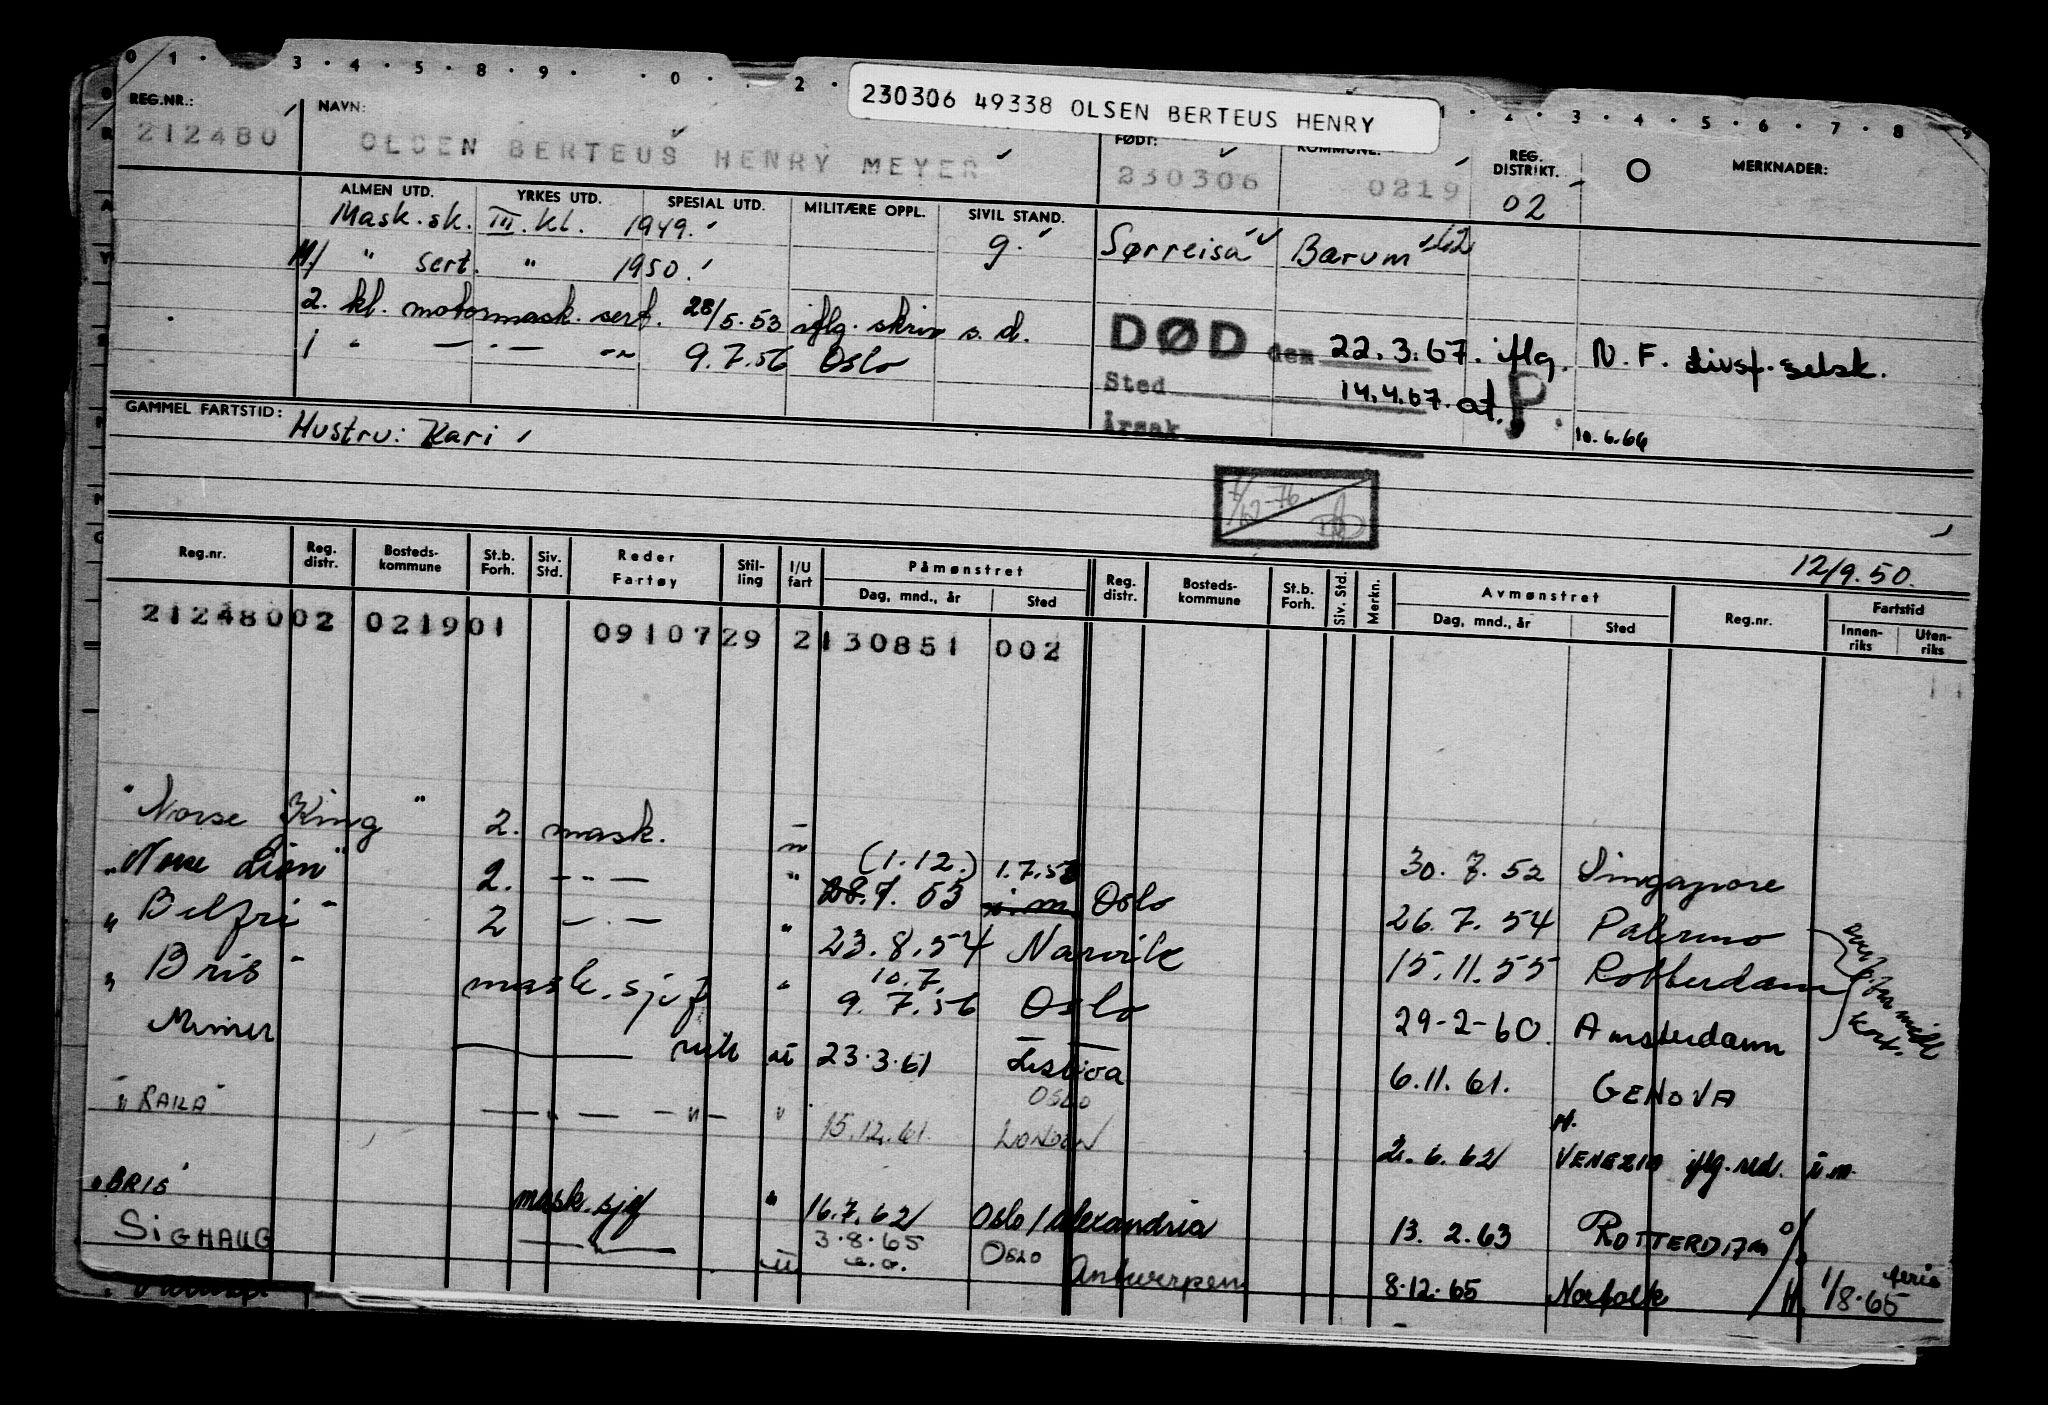 0 1 · 3 · 4 · 5 · 8 · 9 · · 0 · · 2 · 1 · 2 · 3 · 4 · 5 · 6 · 7 · 8 9
230306 49338 OLSEN BERTEUS HENRY
REG.NR.: NAVN: FØDT: KOMMUNE: REG. DISTRIKT. O MERKNADER:
212480 OLSEN BERTEUS HENRY MEYER 230306 0219 02
ALMEN UTD. YRKES UTD. SPESIAL UTD. MILITÆRE OPPL. SIVIL STAND.
Mask. sk. III. kl. 1949. g. Sørreisa Bærum
M/ " sert. " 1950.
2. kl. motormask. sert. 28/5.53 iflg. skriv s.d.
1 " — " — " 9.7.56 Oslo
DØD den 22.3.67. iflg. N.F. livsf. selsk.
Sted 14.4.67. at. P.
Årsak 10.6.66
GAMMEL FARTSTID: Hustru: Kari
7/12-76
12/9.50.
Reg.nr. Reg. distr. Bosteds- kommune St.b. Forh. Siv. Std. Reder Fartøy Stil- ling I/U fart Påmønstret Dag, mnd., år Sted Reg. distr. Bosteds- kommune St.b. Forh. Siv. Std. Merkn. Avmønstret Dag, mnd., år Sted Reg.nr. Fartstid Innen- riks Uten- riks
212480 02 0219 01 0910729 2130851 002
"Norse King" 2. mask. (1.12.) 1.7.52 30.7.52 Singapore
"Norse Lion" 2. — " — " 28.7.53 Oslo 26.7.54 Palermo
"Belfri" 2 — " — " 23.8.54 Narvik 15.11.55 Rotterdam
10.7.
"Bris" mask.sjef " 9.7.56 Oslo 29-2-60. Amsterdam
Mimer 23.3.61 Lisboa 6.11.61. GENOVA
OSLO
"RAILA" — " — — " — " 15.12.61. LONDON 2.6.62 VENEZIA iflg. red.
"BRIS" mask.sjef " 16.7.62 Oslo / Alexandria 13.2.63 ROTTERDAM
SIGHAUG — " — 3.8.65 OSLO Antwerpen 8.12.65 Norfolk 1/8.65 ferie